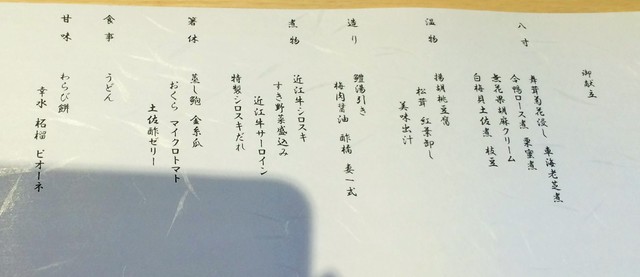 御献立
八寸
舞茸菊花浸し 車海老芝煮
合鴨ロース煮 栗蜜煮
無花果胡麻クリーム
白梅貝土佐煮 枝豆
温物
揚胡桃豆腐
松茸 紅葉卸し
美味出汁
造り
鱧湯引き
梅肉醤油 酢橘 妻一式
煮物
近江牛シロスキ
すき野菜盛込み
近江牛サーロイン
特製シロスキだれ
箸休
蒸し鮑 金糸瓜
おくら マイクロトマト
土佐酢ゼリー
食事
うどん
甘味
わらび餅
幸水 柘榴 ピオーネ